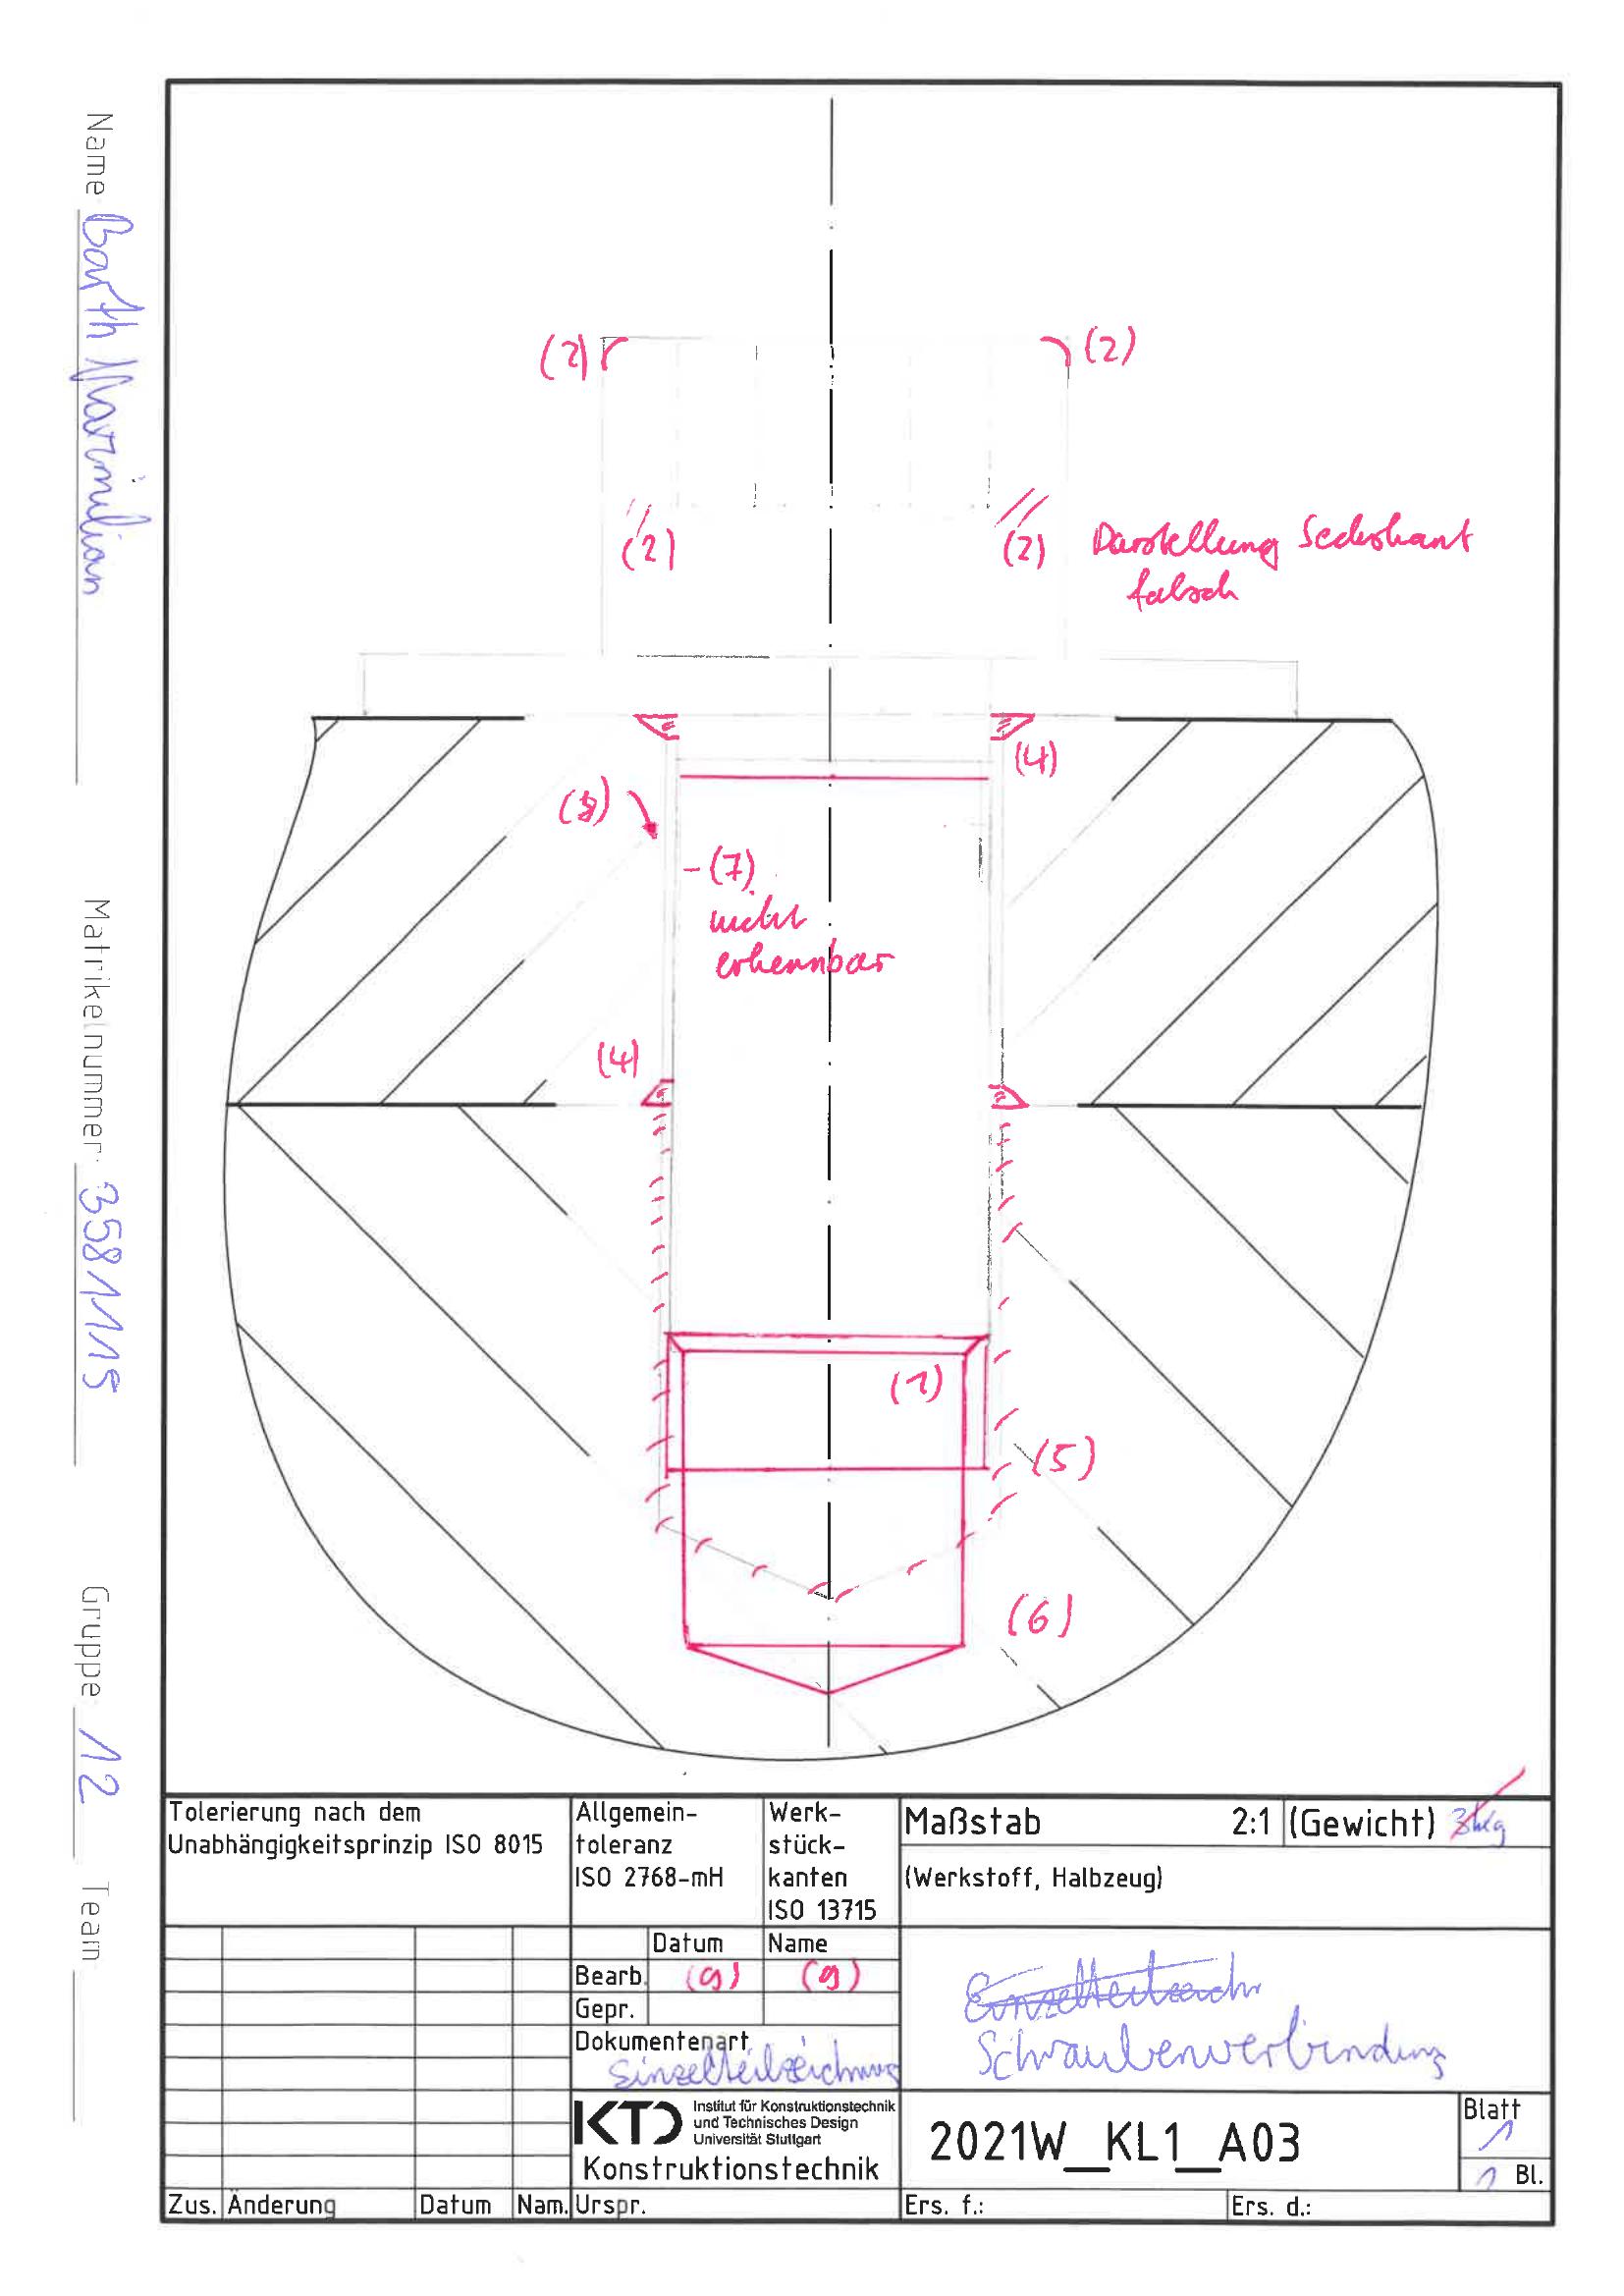 Name Barth Maximilian
Matrikelnummer 3581115
Gruppe 12
Team
(2)
(2)
(2)
(2) Darstellung Sechskant
falsch
(4)
(7)
nicht
erkennbar
(4)
(1)
(5)
(6)
Tolerierung nach dem
Unabhängigkeitsprinzip ISO 8015
Allgemein-
toleranz
ISO 2768-mH
Werk-
stück-
kanten
ISO 13715
Maßstab 2:1
(Gewicht)
(Werkstoff, Halbzeug)
Datum Name
Bearb. (9) (9)
Gepr.
Dokumentenart
Einzelteilzeichnung
Schraubenverbindung
KTD
Institut für Konstruktionstechnik
und Technisches Design
Universität Stuttgart
Konstruktionstechnik
2021W_KL1_A03
Blatt
1
1 Bl.
Zus. Änderung Datum Nam. Urspr. Ers. f.: Ers. d.: